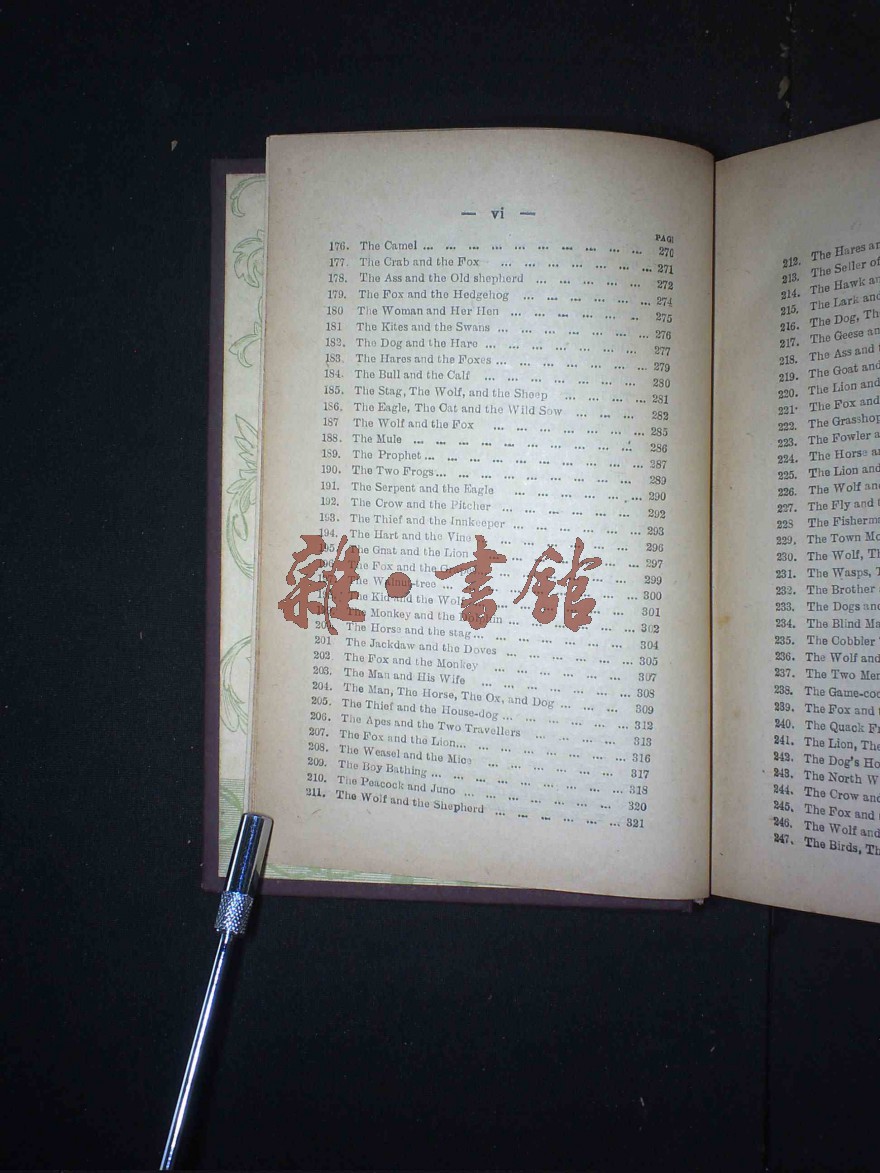 — vi —
PAGE
176. The Camel ... ... ... ... ... ... ... ... ... ... 270
177. The Crab and the Fox ... ... ... ... ... ... ... 271
178. The Ass and the Old shepherd ... ... ... ... ... 272
179. The Fox and the Hedgehog ... ... ... ... ... ... 274
180 The Woman and Her Hen ... ... ... ... ... .. 275
181 The Kites and the Swans ... ... ... ... ... ... ... 276
182. The Dog and the Hare ... ... ... ... ... ... ... 277
183. The Hares and the Foxes ... ... ... ... ... ... ... 279
184. The Bull and the Calf ... ... ... ... ... ... ... 280
185. The Stag, The Wolf, and the Sheep ... ... ... ... 281
186. The Eagle, The Cat and the Wild Sow ... ... ... 282
187 The Wolf and the Fox ... ... ... ... ... ... ... 285
188. The Mule ... ... ... ... ... ... ... ... ... ... 286
189. The Prophet ... ... ... ... ... ... ... ... ... ... 287
190. The Two Frogs ... ... ... ... ... ... ... ... ... 289
191. The Serpent and the Eagle ... ... ... ... ... ... 290
192. The Crow and the Pitcher ... ... ... ... ... ... 292
193. The Thief and the Innkeeper ... ... ... ... ... ... 293
194. The Hart and the Vine ... ... ... ... ... ... 296
195. The Gnat and the Lion ... ... ... ... ... ... 297
The Fox and the ... ... ... ... ... ... 299
The Walnut-tree ... ... ... ... ... ... ... 300
The Kid and the Wolf ... ... ... ... ... ... 301
The Monkey and the Dolphin ... ... ... ... ... ... 302
The Horse and the stag ... ... ... ... ... ... ... 304
201 The Jackdaw and the Doves ... ... ... ... ... ... 305
202 The Fox and the Monkey ... ... ... ... ... ... 307
203. The Man and His Wife ... ... ... ... ... ... ... 308
204. The Man, The Horse, The Ox, and Dog ... ... ... ... 309
205. The Thief and the House-dog ... ... ... ... ... ... 312
206. The Apes and the Two Travellers ... ... ... ... 313
207. The Fox and the Lion ... ... ... ... ... ... ... 316
208. The Weasel and the Mice ... ... ... ... ... ... 317
209. The Boy Bathing ... ... ... ... ... ... ... ... 318
210. The Peacock and Juno ... ... ... ... ... ... ... 320
211. The Wolf and the Shepherd ... ... ... ... ... ... 321
雜·書館
212. The Hares
213. The Seller of
214. The Hawk
215. The Lark and
216. The Dog,
217. The Geese
218. The Ass and
219. The Goat and
220. The Lion and
221. The Fox and
222. The
223. The Fowler
224. The Horse
225. The Lion and
226. The Wolf
227. The Fly and
228 The
229. The Town
230. The Wolf,
231. The Wasps,
232. The Brother
233. The Dogs and
234. The Blind
235. The Cobbler
236. The Wolf and
237. The Two
238. The
239. The Fox and
240. The Quack
241. The Lion, The
242. The Dog's
243. The North
244. The Crow and
245. The Fox and
246. The Wolf and
247. The Birds,